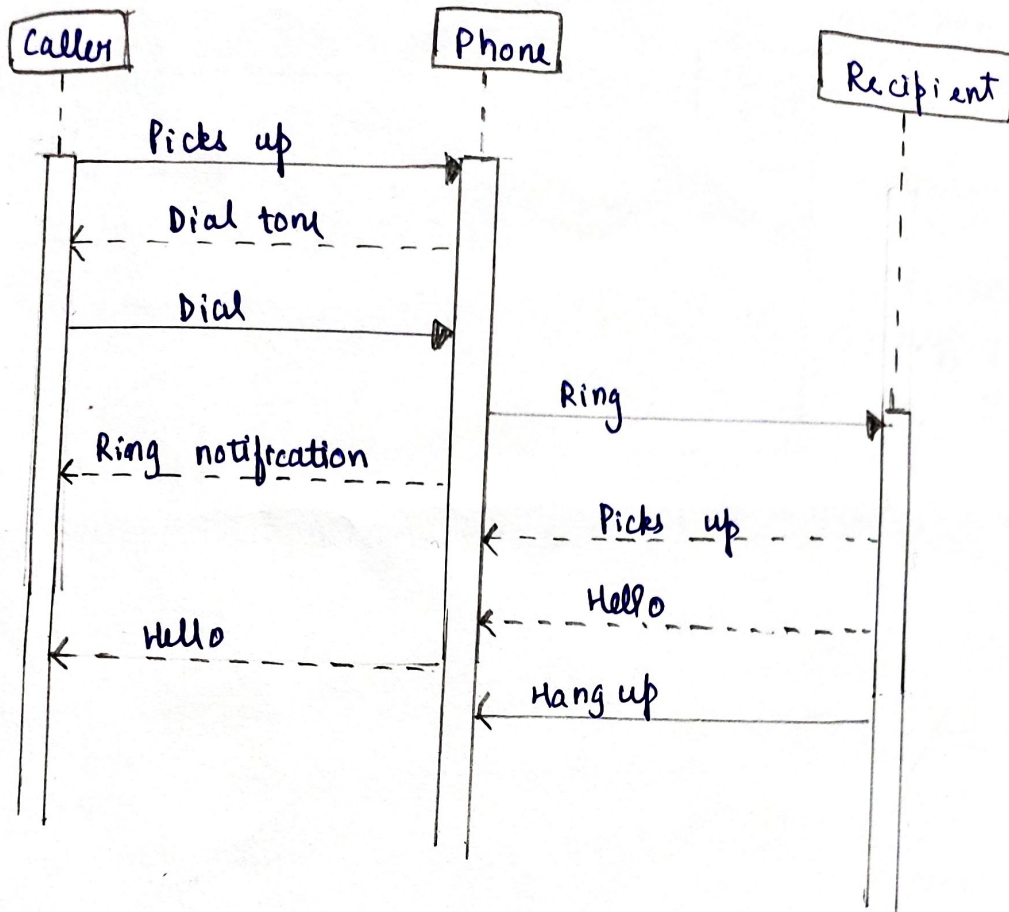 Caller
Phone
Recipient
Picks up
Dial tone
Dial
Ring
Ring notification
Picks up
Hello
Hello
Hang up